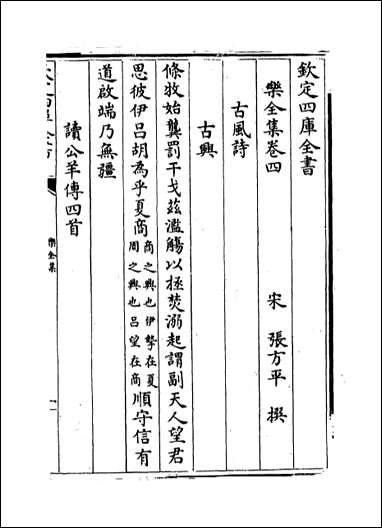 欽定四庫全書
樂全集卷四
宋 張方平 撰
古風詩
古興
條牧始龔罰干戈茲濫觴以拯焚溺起謂副天人望君
思彼伊呂胡為乎夏商商之興也伊摯在夏周之興也呂望在商順守信有
道啟端乃無疆
讀公羊傳四首
樂全集